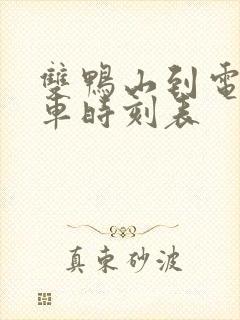 雙鴨山到電
車時刻表
真東砂波